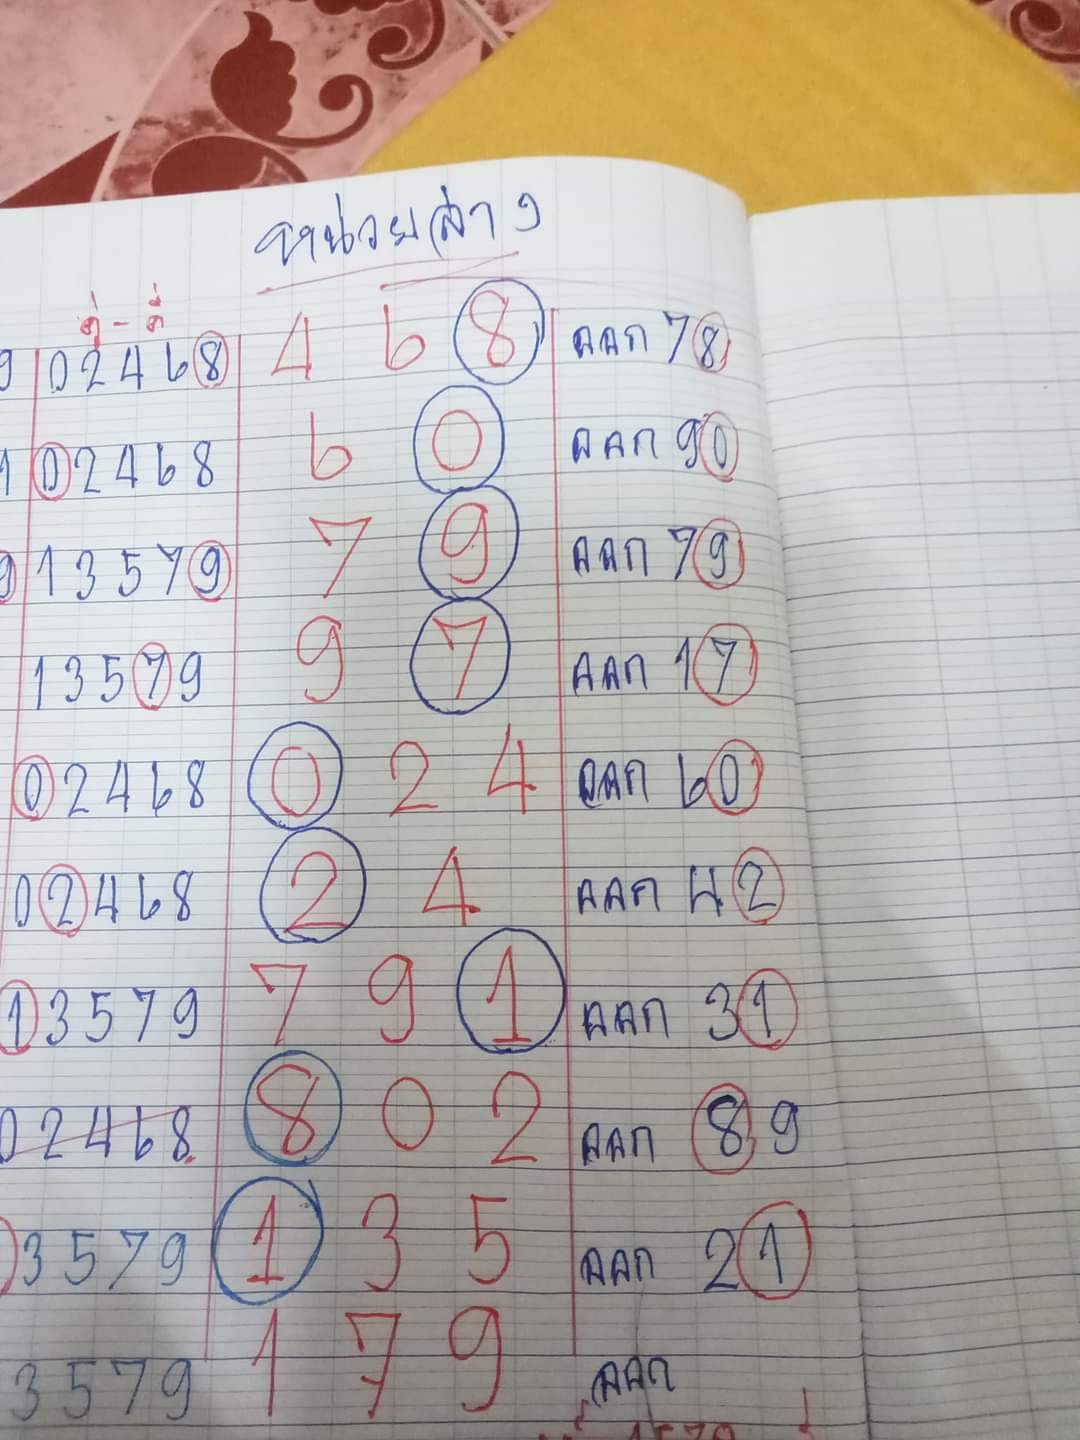 หน่วยล่าง
คู่ - คี่
9 02468 4 6 8 ออก 78
1 02468 6 0 ออก 90
9 13579 7 9 ออก 79
13579 9 7 ออก 17
02468 0 2 4 ออก 60
02468 2 4 ออก 42
13579 7 9 1 ออก 31
02468 8 0 2 ออก 89
3579 1 3 5 ออก 21
3579 1 7 9 ออก